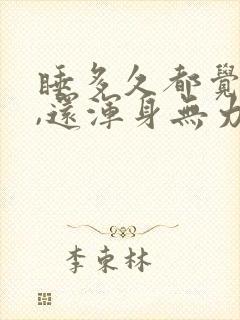 睡多久都覺
,還渾身無力
李東林